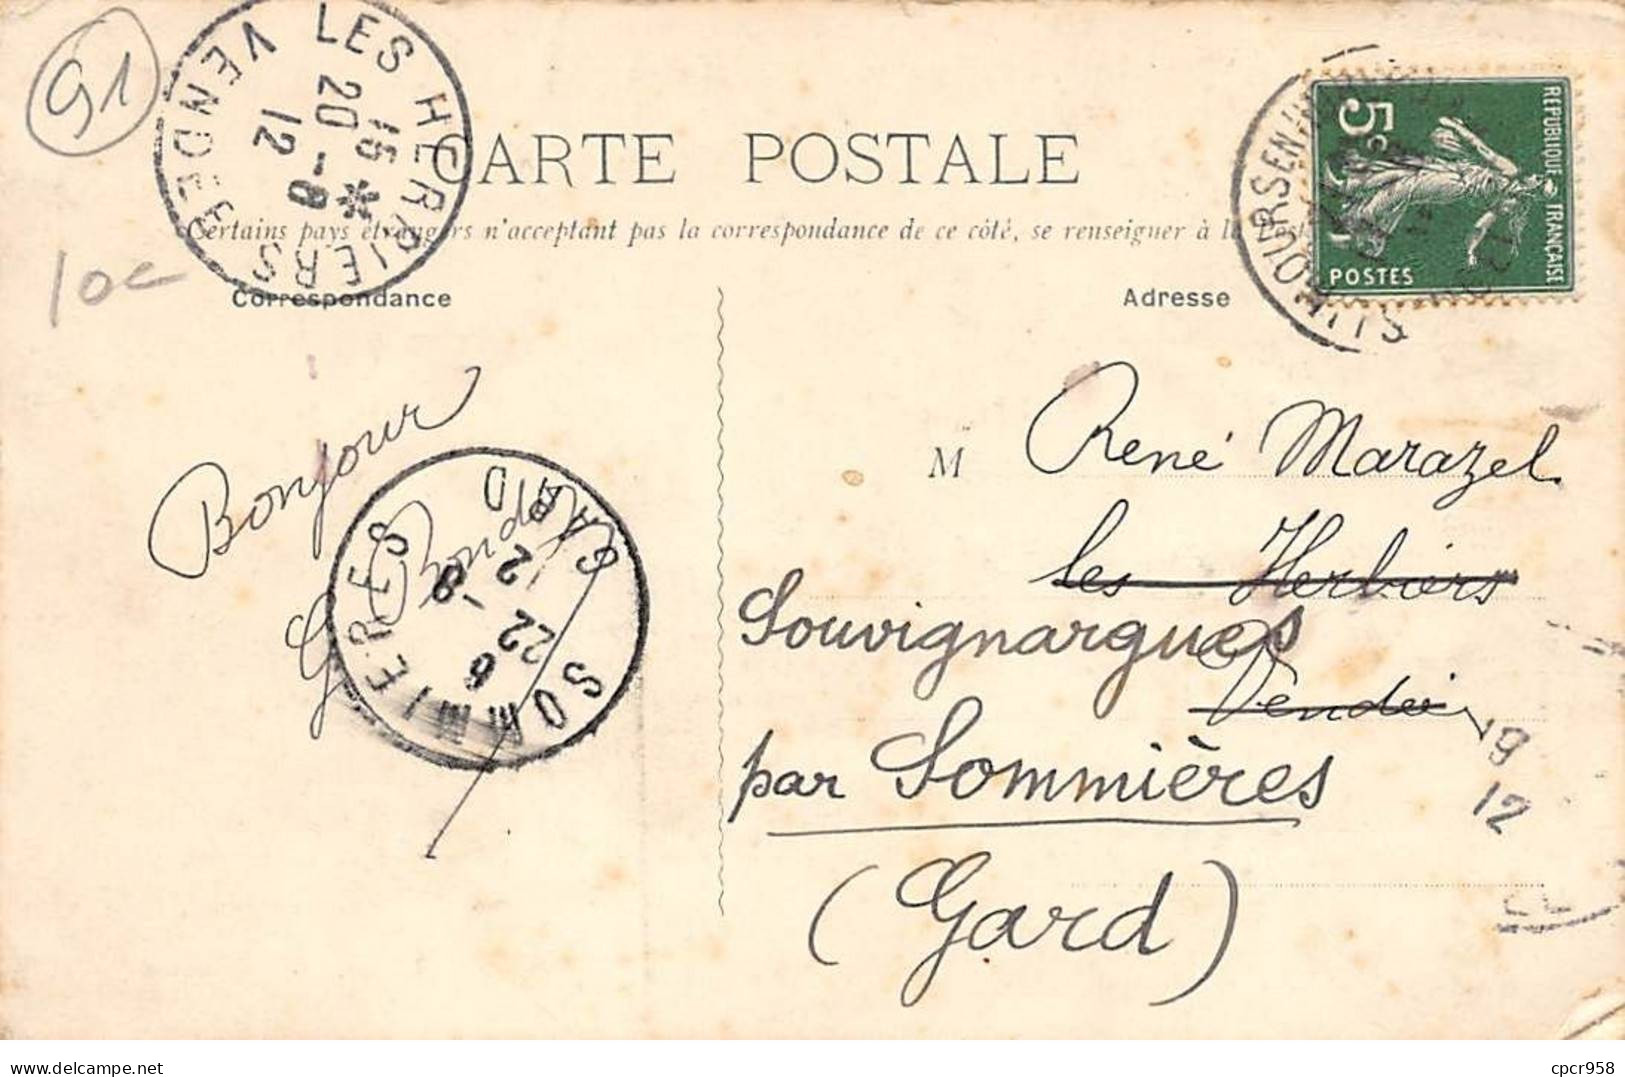 91
LES HERBIERS
VENDÉE
15 *
20 - 8
12
CARTE POSTALE
Certains pays étrangers n'acceptent pas la correspondance de ce côté, se renseigner à la
10e
Correspondance
Adresse
REPUBLIQUE FRANÇAISE
5c
POSTES
Bonjour
SOMMIERES
GARD
6
22 - 8
12
M René Marazel
les Herbiers
Souvignargues
Vendée
par Sommières
(Gard)
19
12
cpcr958